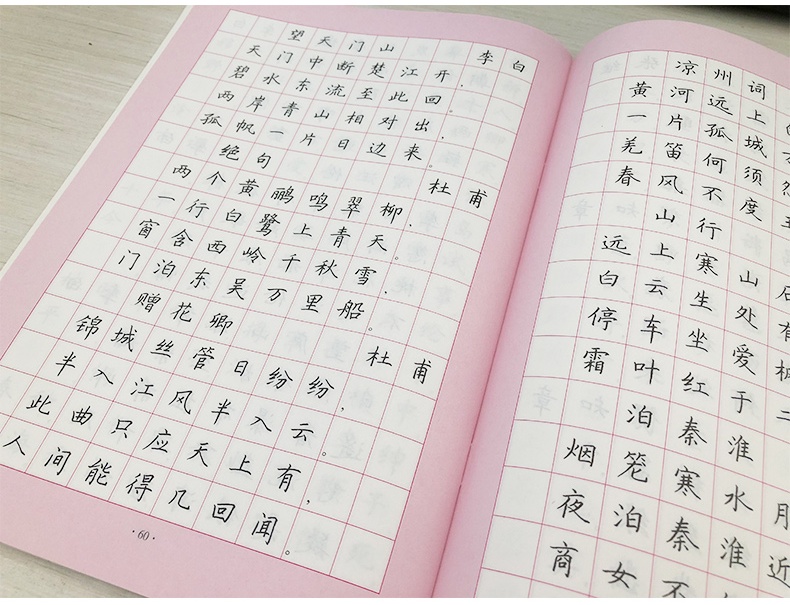 望天门山 李白
天门中断楚江开，
碧水东流至此回。
两岸青山相对出，
孤帆一片日边来。
绝句 杜甫
两个黄鹂鸣翠柳，
一行白鹭上青天。
窗含西岭千秋雪，
门泊东吴万里船。
赠花卿 杜甫
锦城丝管日纷纷，
半入江风半入云。
此曲只应天上有，
人间能得几回闻。
·60·
凉州词
黄河远上
一片孤城万
羌笛何须怨
春风不度
山行
远上寒山石
白云生处有
停车坐爱枫
霜叶红于二
泊秦淮
烟笼寒水月
夜泊秦淮近
商女不